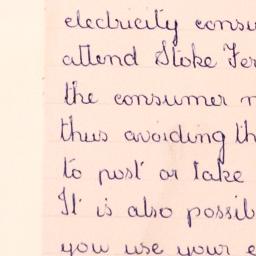 electricity consu
attend Stoke Fer
the consumer
thus avoiding th
to post or take
It is also possib
you use your e